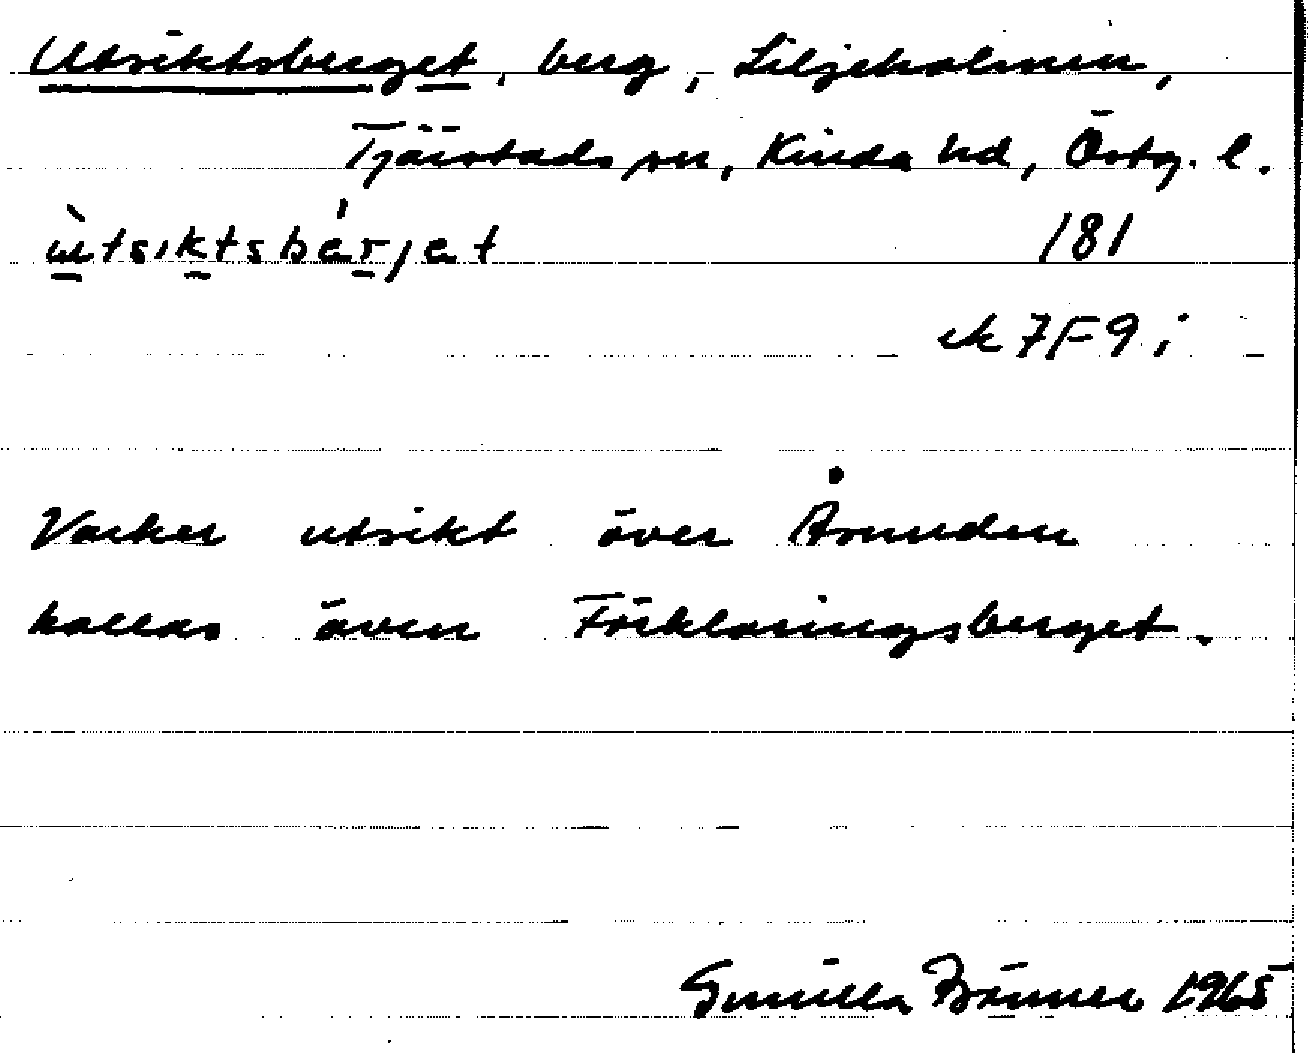 Utsiktsberget, berg, Liljeholmen,
Tjärstads sn, Kinda hd, Östg. l.
ùtsiktsbárjet 181
ek 7F9i
Vacker utsikt över Åsunden
kallas även Förklaringsberget.
Gunilla 1965